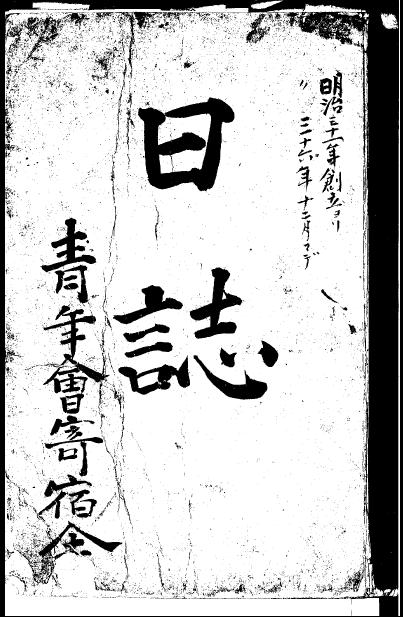 明治三十一年創立ヨリ
〃三十六年十二月マデ
日誌
青年會寄宿舍